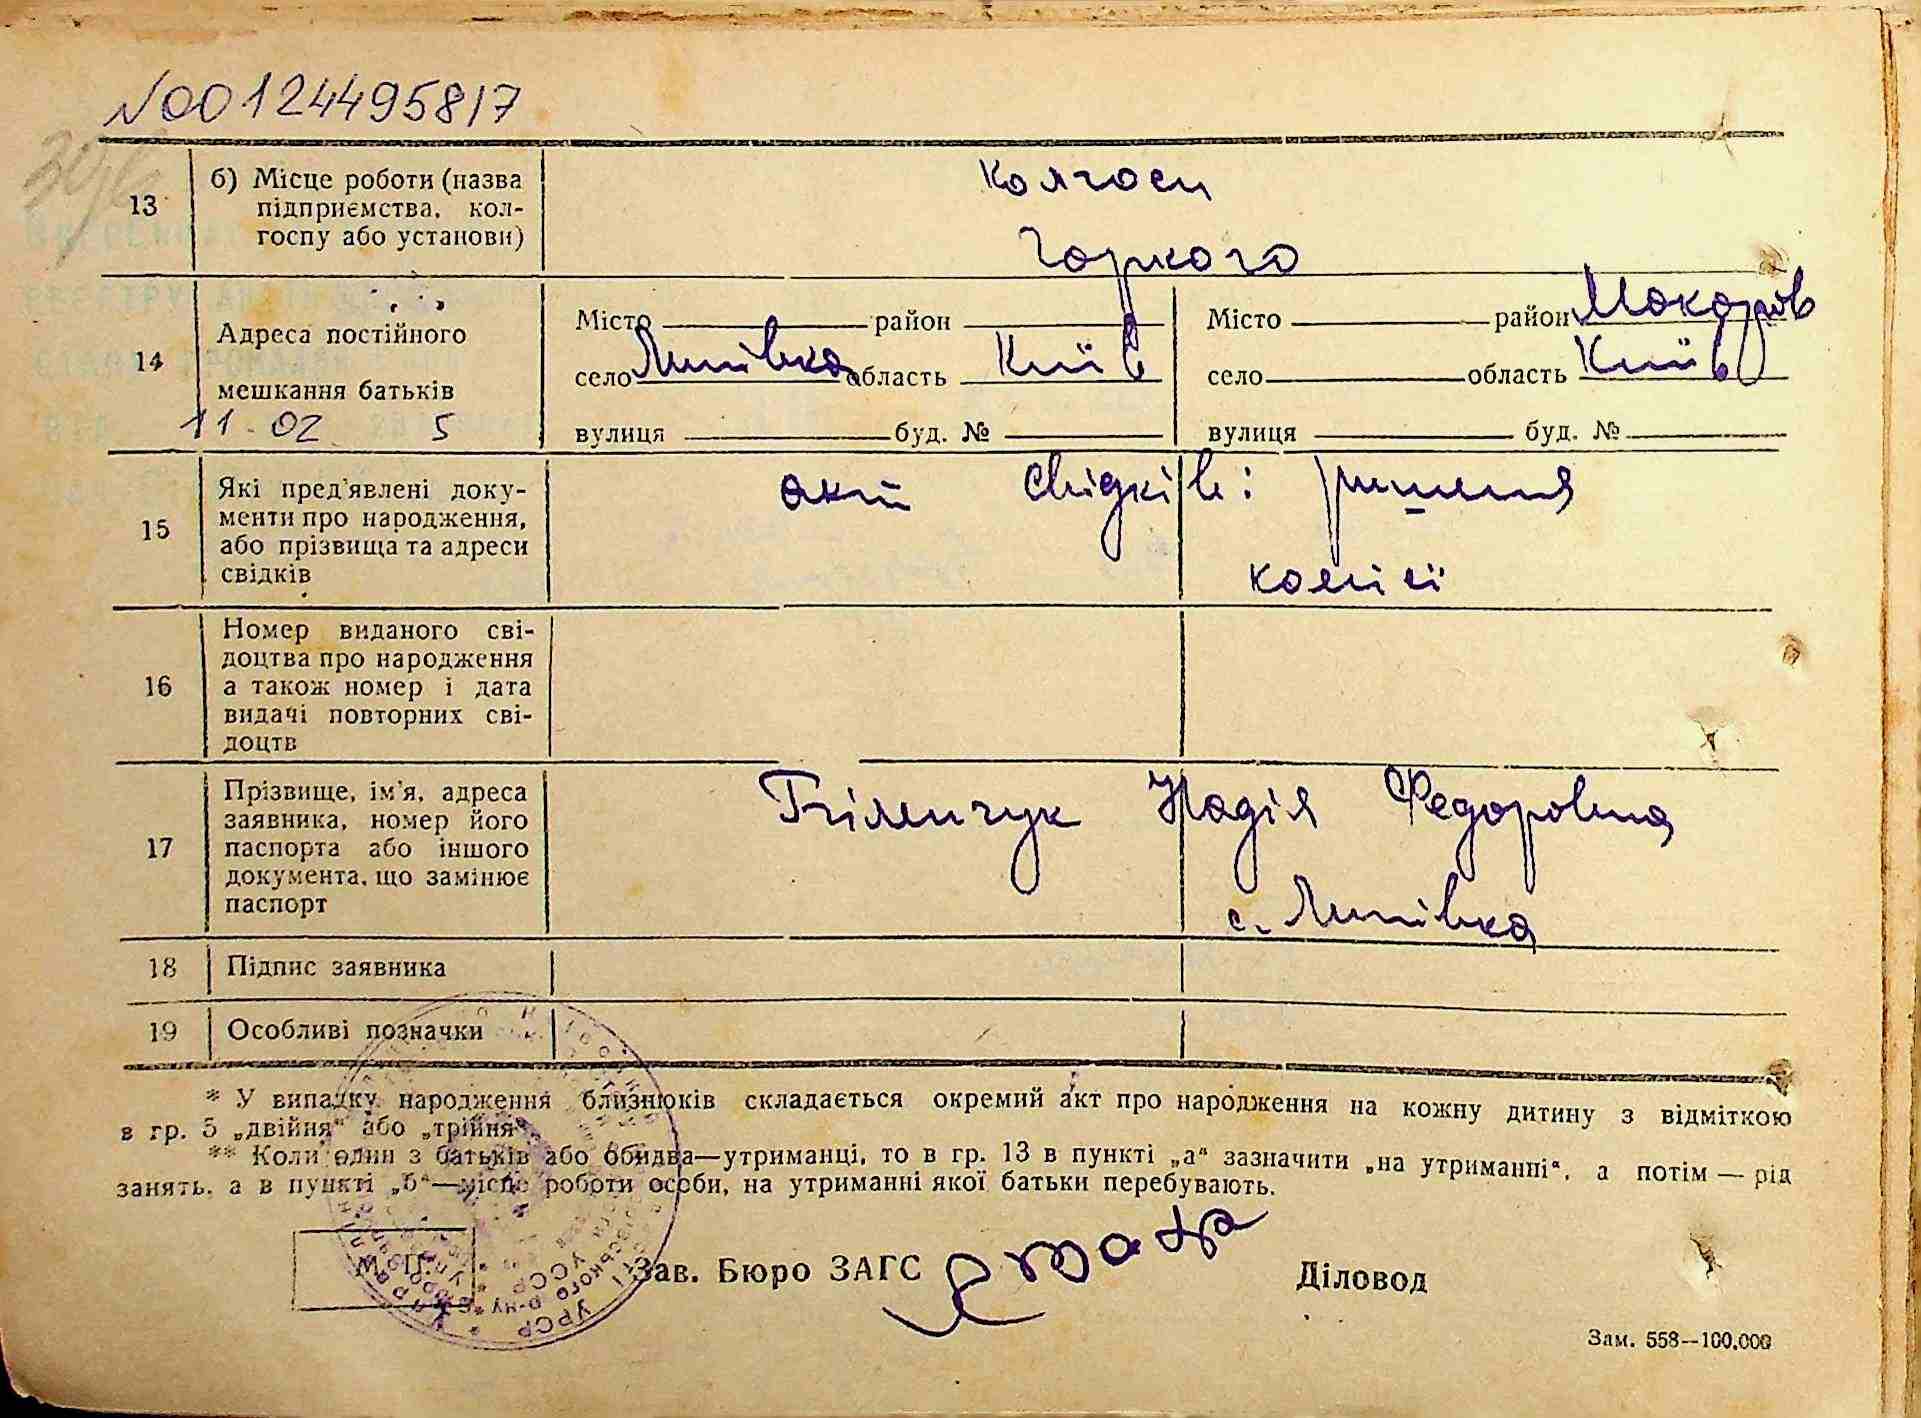 №00124495817
13
б) Місце роботи (назва
підприємства, кол-
госпу або установи)
Колгосп
Горкого
14
Адреса постійного
мешкання батьків
11-02 5
Місто район
село Липівка область Київ
вулиця буд. №
Місто район Макарів
село область Київ
вулиця буд. №
15
Які пред'явлені доку-
менти про народження,
або прізвища та адреси
свідків
акт свідків: рішення
комісії
16
Номер виданого сві-
доцтва про народження
а також номер і дата
видачі повторних сві-
доцтв
17
Прізвище, ім'я, адреса
заявника, номер його
паспорта або іншого
документа, що замінює
паспорт
Надія Федоровна
с. Липівка
18 Підпис заявника
19 Особливі позначки
* У випадку народження близнюків складається окремий акт про народження на кожну дитину з відміткою
в гр. 5 „двійня“ або „трійня“.
** Коли один з батьків або обидва—утриманці, то в гр. 13 в пункті „а“ зазначити „на утриманні“, а потім — рід
занять, а в пункті „б“—місце роботи особи, на утриманні якої батьки перебувають.
М. П.
Зав. Бюро ЗАГС
Діловод
Зам. 558—100.000